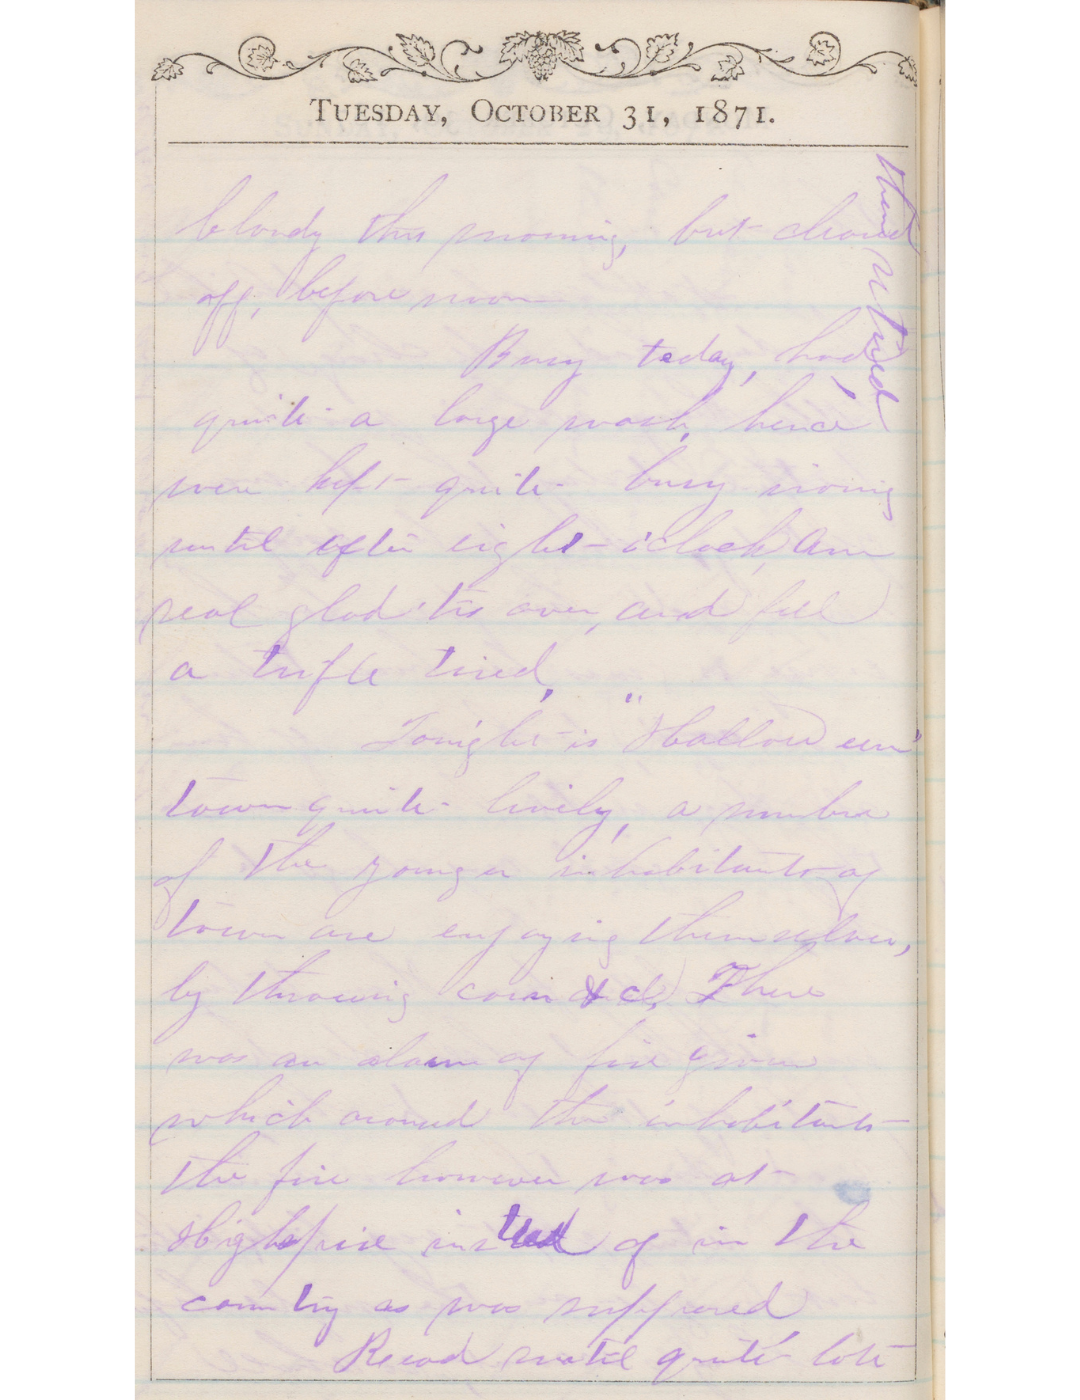 TUESDAY, OCTOBER 31, 1871.
Cloudy this morning, but cleared
off, before noon
Busy today, had
quite a large wash, hence
were kept quite busy ironing
until after eight o'clock, Am
real glad 'tis over, and feel
a trifle tired,
Tonight is "Hallow een"
town quite lively, a number
of the younger inhabitants of
town are enjoying themselves,
by throwing corn &c, There
was an alarm of fire given
which aroused the inhabitants
the fire however was at
Highspire instead of in the
country as was supposed
Read until quite late
then retired